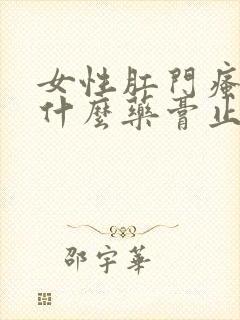 女性肛門瘙
什麼藥膏止
邵宇華